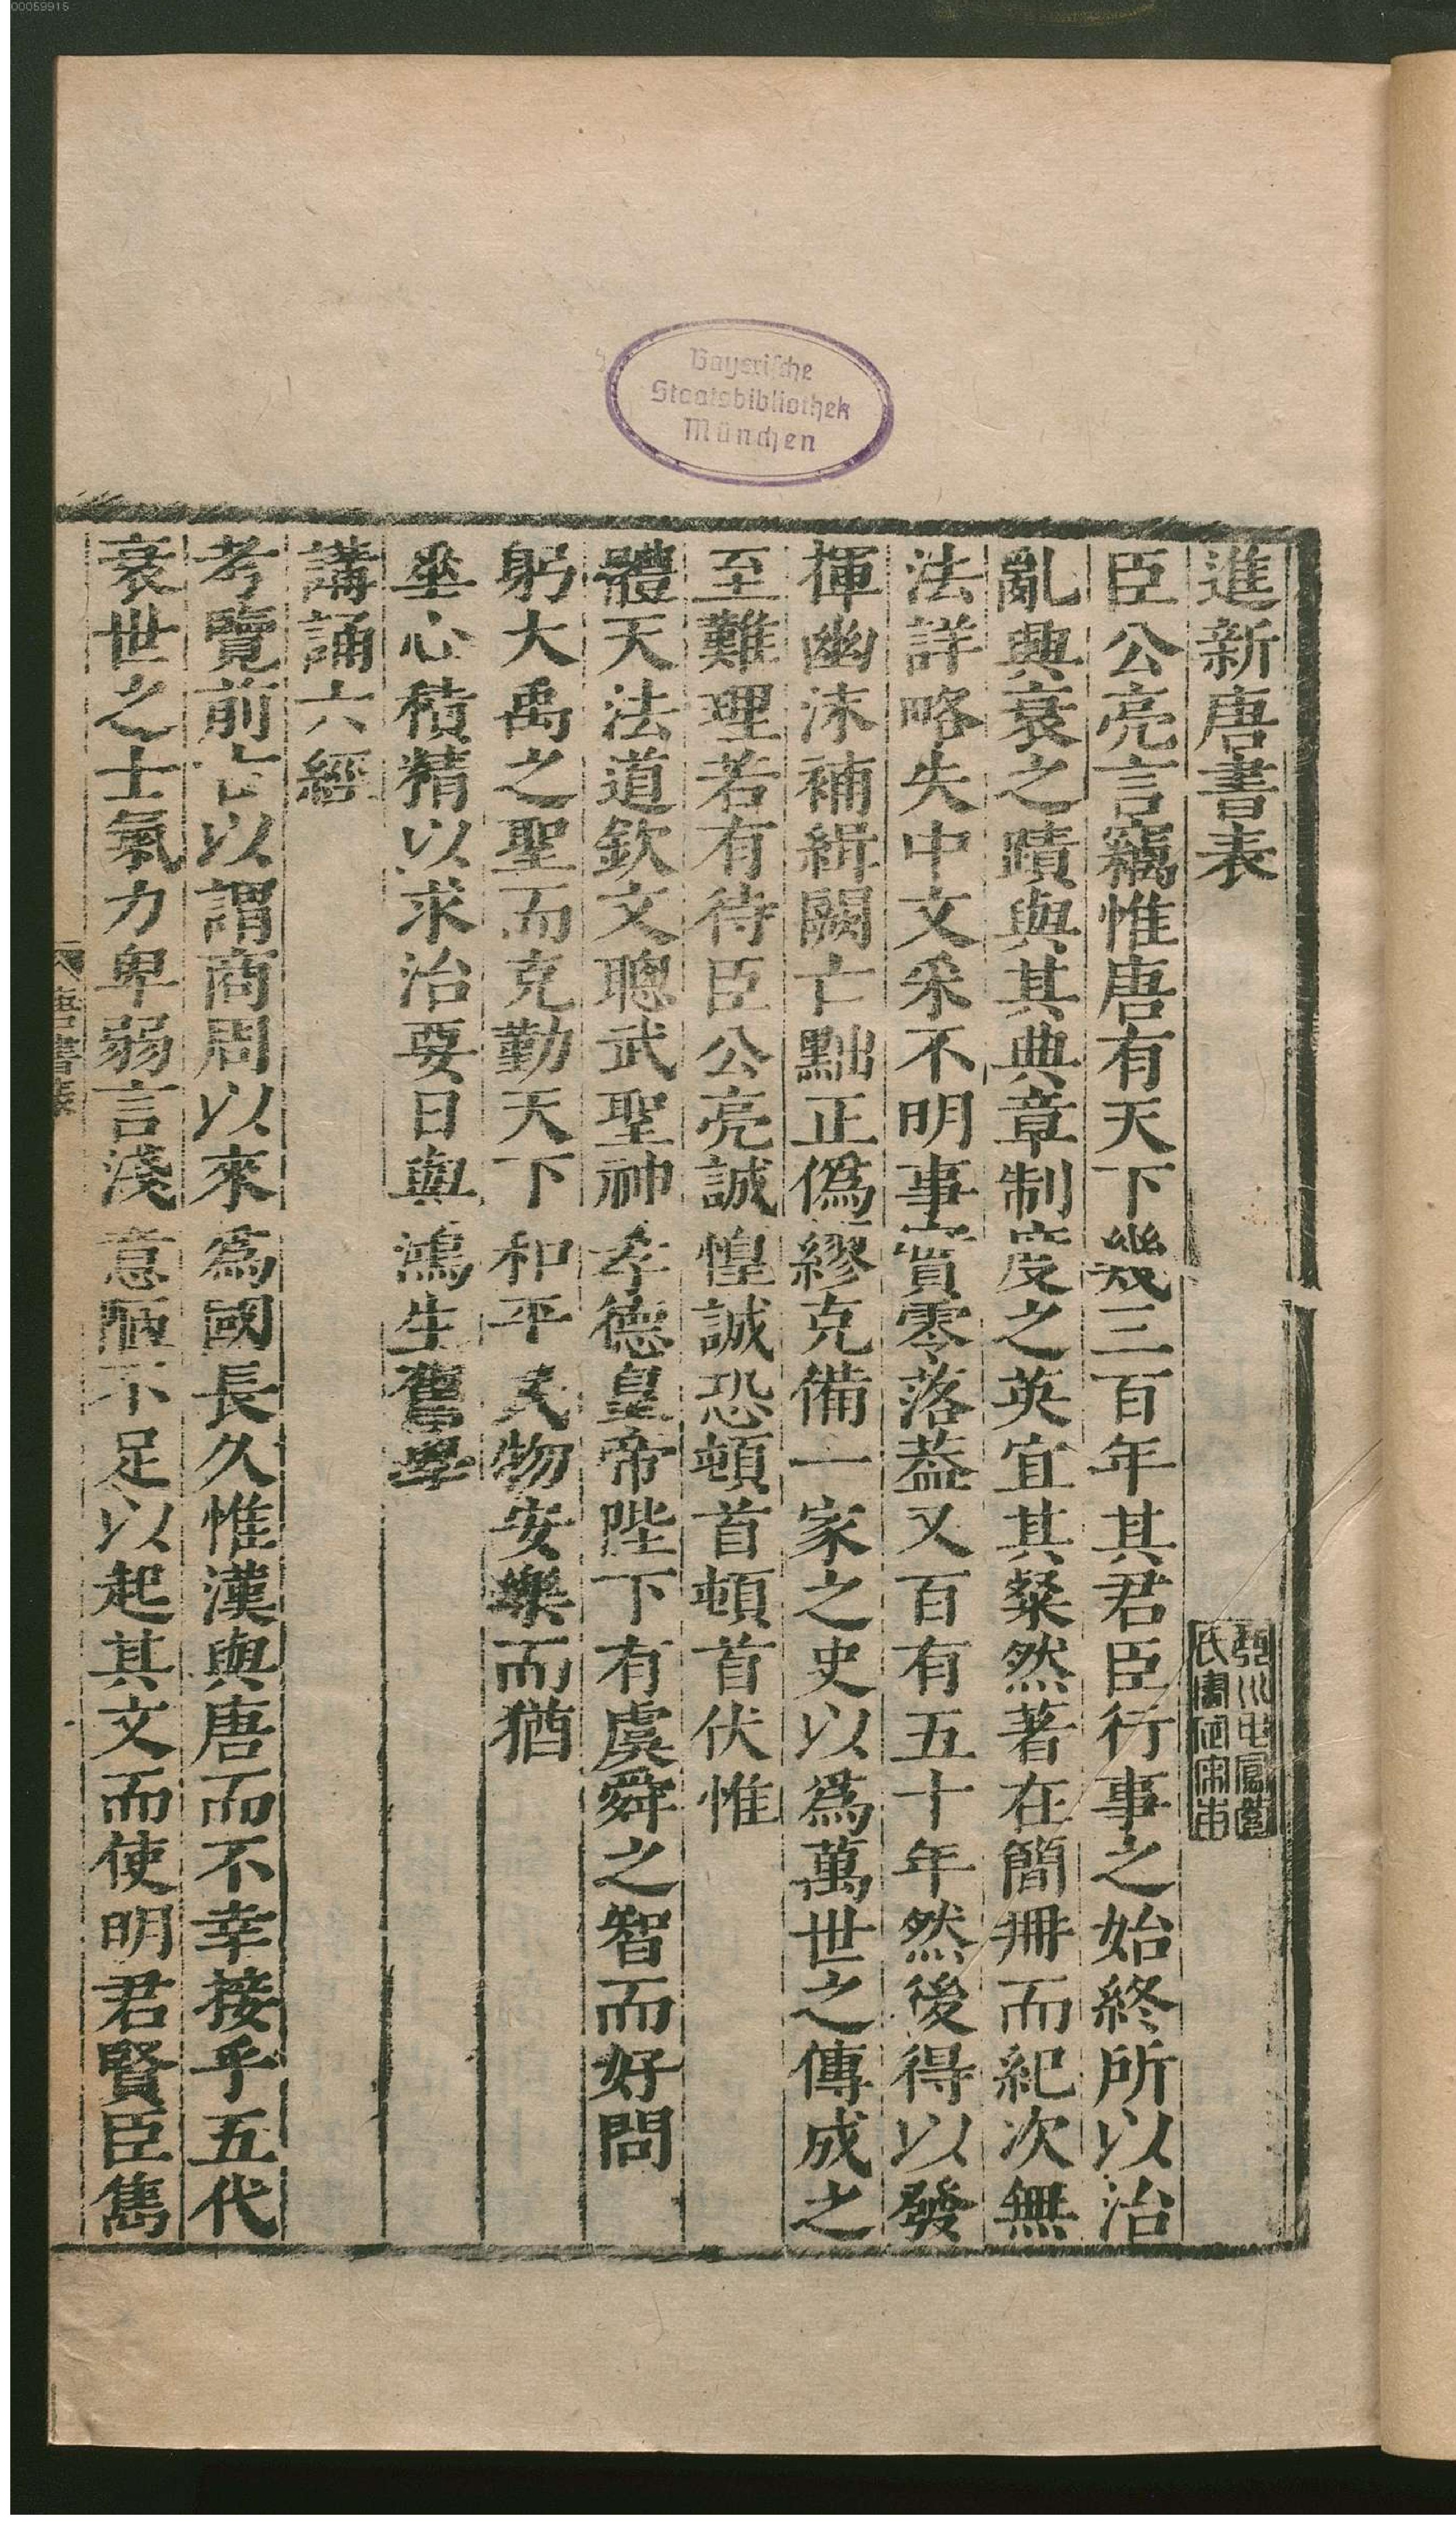 00059915
Bayerische
Staatsbibliothek
München
進新唐書表
臣公亮言竊惟唐有天下幾三百年其君臣行事之始終所以治
亂興衰之蹟與其典章制度之英宜其粲然著在簡冊而紀次無
法詳略失中文采不明事實零落葢又百有五十年然後得以發
揮幽沬補緝闕亡黜正僞繆克備一家之史以爲萬世之傳成之
至難理若有待臣公亮誠惶誠恐頓首頓首伏惟
體天法道欽文聰武聖神孝德皇帝陛下有虞舜之智而好問
躬大禹之聖而克勤天下和平民物安樂而猶
垂心積精以求治要日與鴻生舊學
講誦六經
考覽前古以謂商周以來爲國長久惟漢與唐而不幸接乎五代
衰世之士氣力卑弱言淺意陋不足以起其文而使明君賢臣雋
唐書表